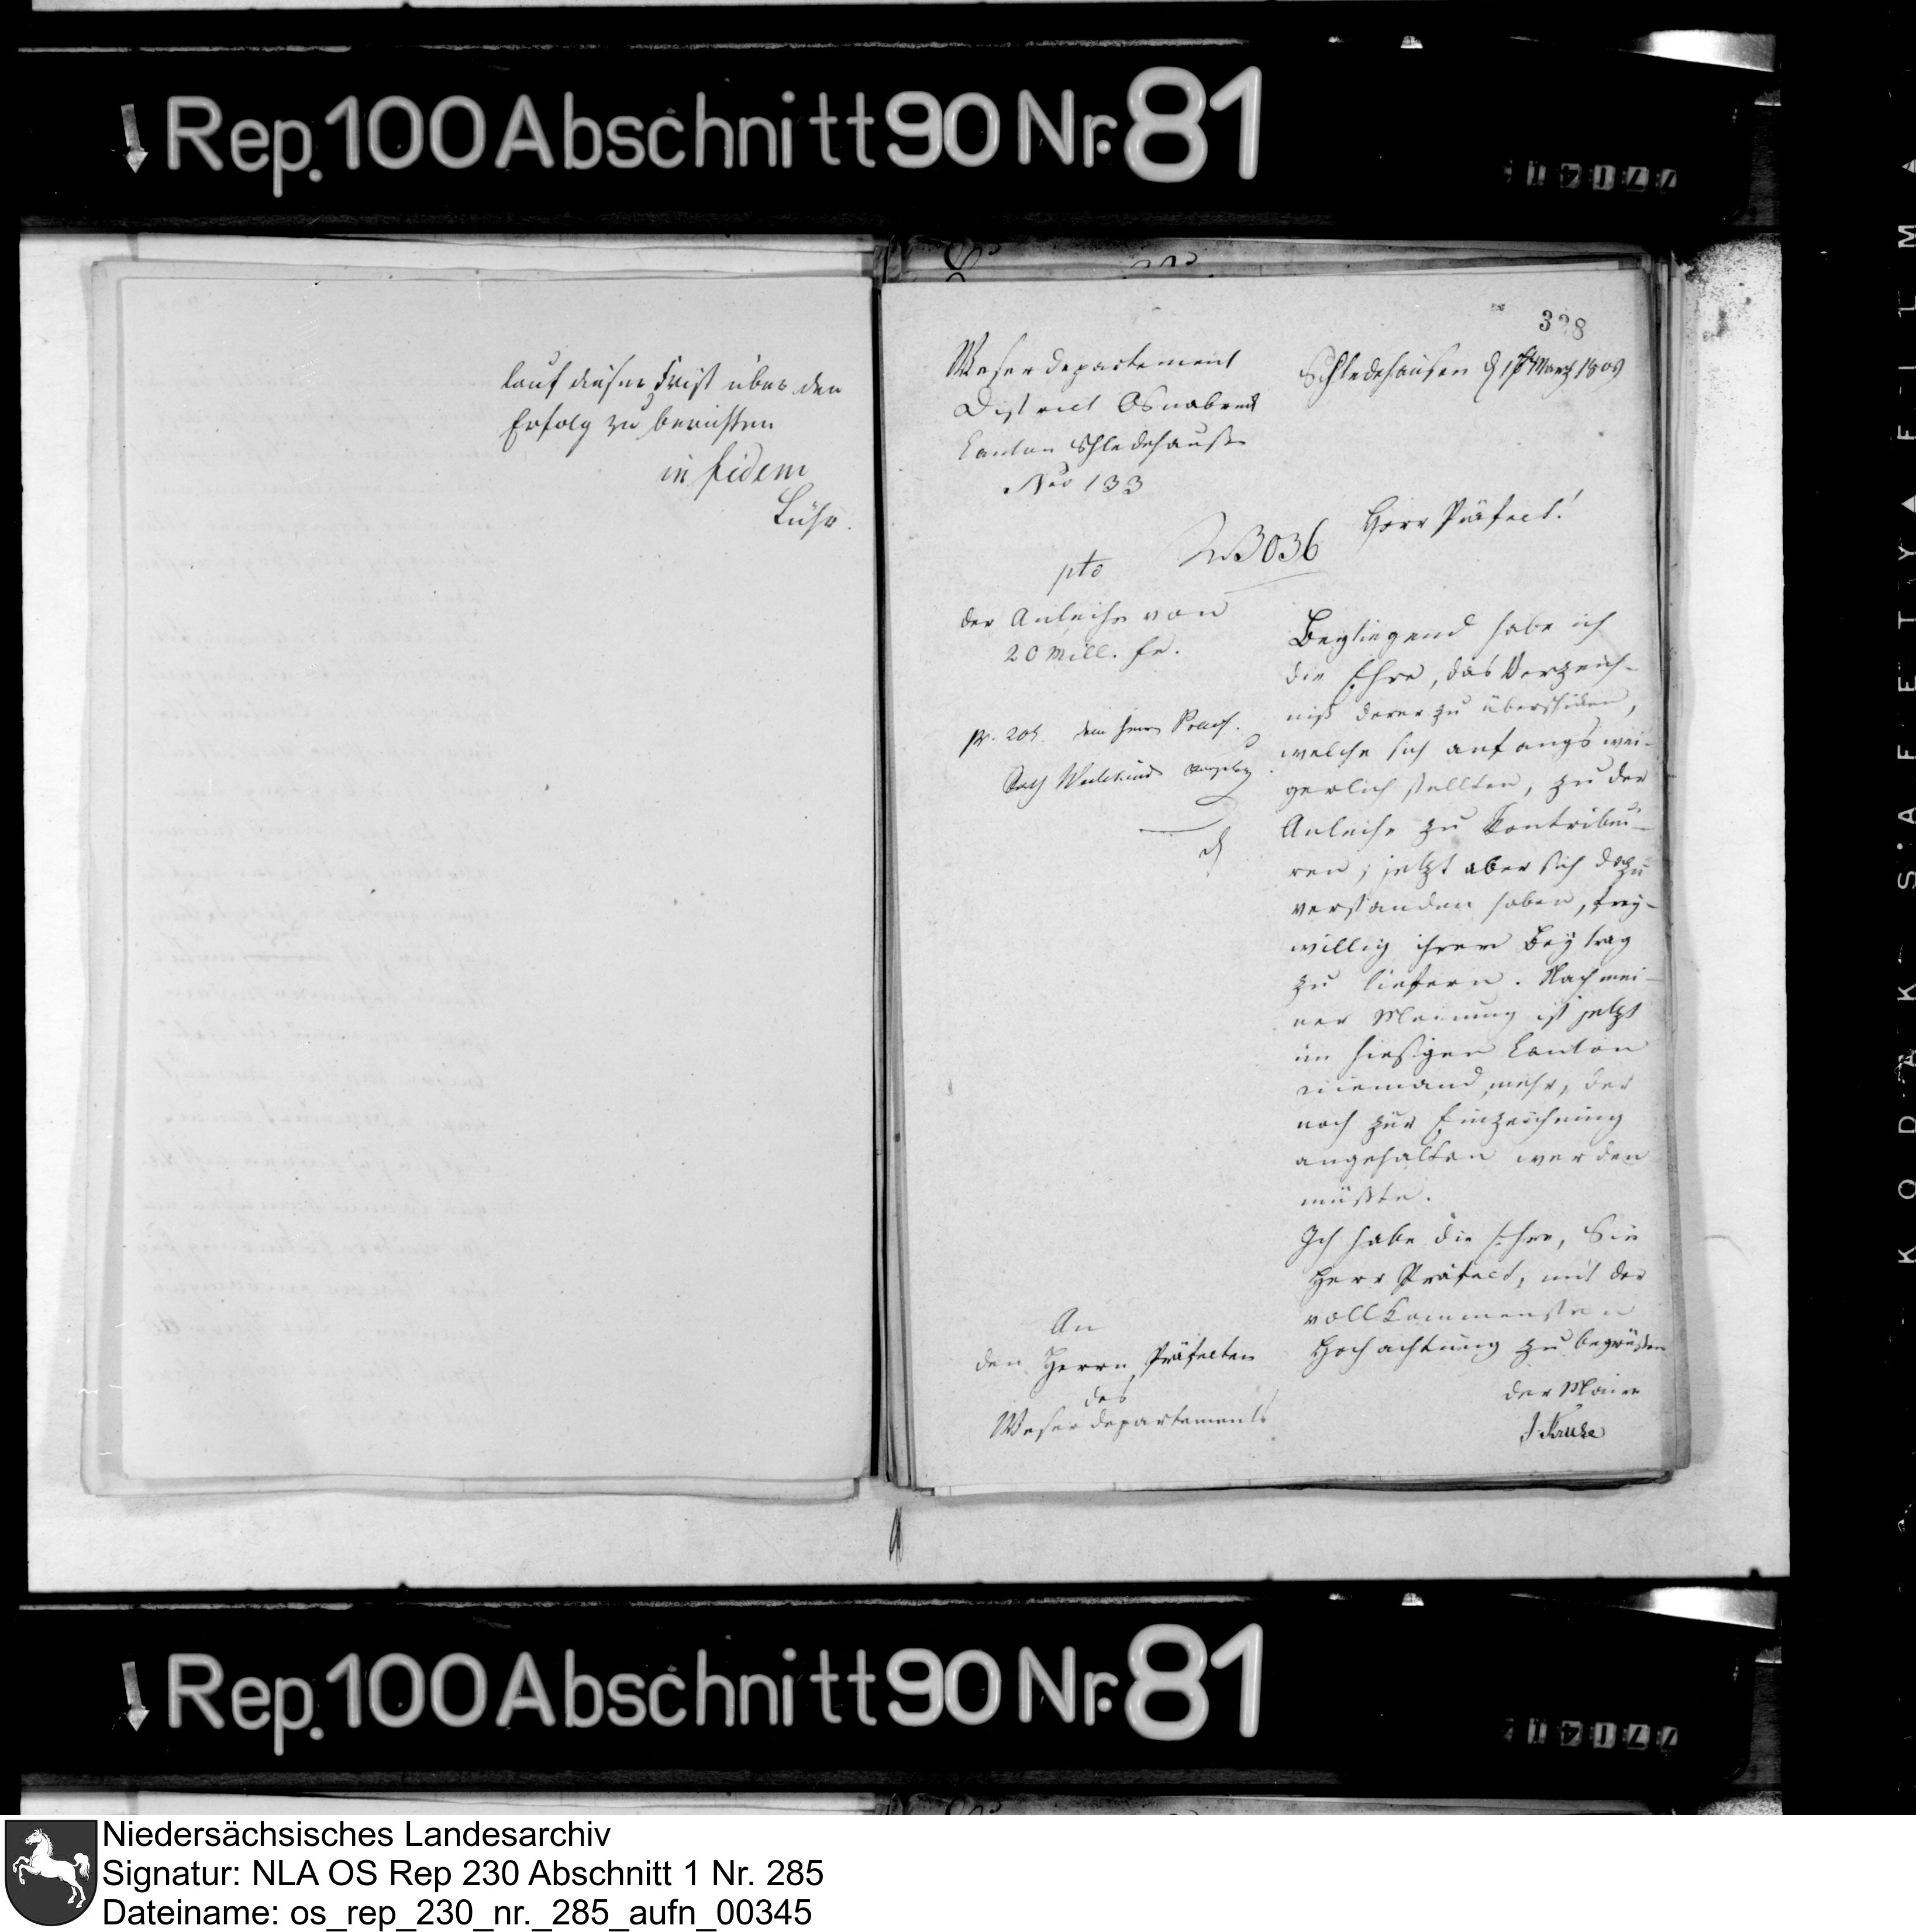 Rep. 100 Abschnitt 90 Nr. 81
lauf dieser Frist über den
Erfolg zu berichten
in fidem
Lühr.
328
Weserdepartement
District Osnabrück
Canton Schledehausen
Nro 133
Schledehausen d März 1809
3036
Herr Präfect!
pto
der Anleihe von
20 Mill. fr.
pr. dem Herrn
Beyliegend habe ich
die Ehre, das Verzeich-
niß derer zu überschicken,
welche sich anfangs wei-
gerlich stellten, zu der
Anleihe zu kontribui-
ren; jetzt aber sich dazu
verstanden haben, frey-
willig ihren Beytrag
zu liefern. Nach mei-
ner Meinung ist jetzt
im hiesigen Canton
niemand mehr, der
noch zur Einzeichnung
angehalten werden
müßte.
Ich habe die Ehre, Sie
Herr Präfect, mit der
vollkommensten
Hochachtung zu begrüßen
der Maire
J. Kruse
An
den Herrn Präfecten
des
Weserdepartements
KODAK SAFETY FILM
Rep. 100 Abschnitt 90 Nr. 81
Niedersächsisches Landesarchiv
Signatur: NLA OS Rep 230 Abschnitt 1 Nr. 285
Dateiname: os_rep_230_nr._285_aufn_00345